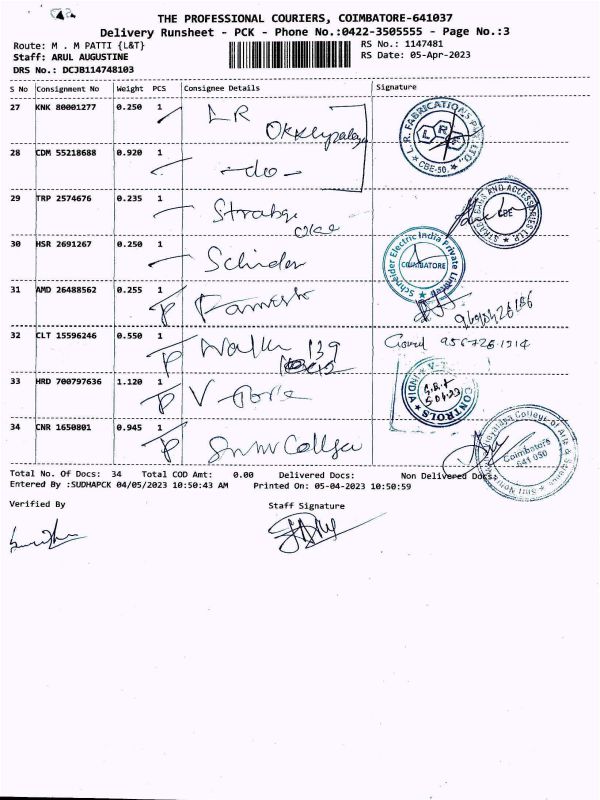 THE PROFESSIONAL COURIERS, COIMBATORE-641037
Delivery Runsheet - PCK - Phone No.:0422-3505555 - Page No.:3
Route: M . M PATTI {L&T}
RS No.: 1147481
Staff: ARUL AUGUSTINE
RS Date: 05-Apr-2023
DRS No.: DCJB114748103
S No Consignment No Weight PCS Consignee Details Signature
27 KNK 80001277 0.250 1 LR
L.R. FABRICATIONS CBE-50.
28 CDM 55218688 0.920 1 -do-
29 TRP 2574676 0.235 1
AND ACCESSORIES CBE
30 HSR 2691267 0.250 1
Schneider Electric India Private Limited COIMBATORE
31 AMD 26488562 0.255 1
32 CLT 15596246 0.550 1 139
33 HRD 700797636 1.120 1
CONTROLS INDIA
34 CNR 1650801 0.945 1
College of Arts & Science Coimbatore 641 050
Total No. Of Docs: 34 Total COD Amt: 0.00 Delivered Docs: Non Delivered Docs:
Entered By :SUDHAPCK 04/05/2023 10:50:43 AM Printed On: 05-04-2023 10:50:59
Verified By Staff Signature